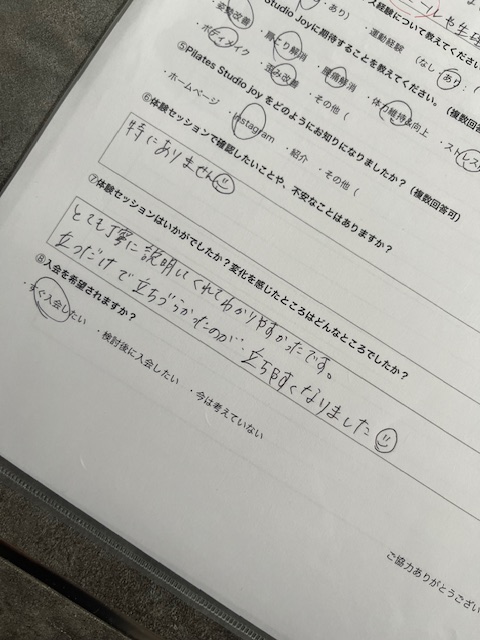 ルや生理
人経験について教えてください
（なし・あり）：（
・運動経験
あり）
姿勢改善
Studio Joyに期待することを教えてください。（複数回答
・ボディメイク ・肩こり解消 ・腰痛解消 ・体力維持&向上 ・ストレス
・歪み改善 ・その他（
⑤Pilates Studio Joy をどのようにお知りになりましたか？（複数回答可）
・ホームページ ・Instagram ・紹介 ・その他（
⑥体験セッションで確認したいことや、不安なことはありますか？
特にありません
⑦体験セッションはいかがでしたか？変化を感じたところはどんなところでしたか？
とても丁寧に説明してくれてわかりやすかったです。
立つだけで立ちづらかったのが、立ちやすくなりました
⑧入会を希望されますか？
・すぐ入会したい ・検討後に入会したい ・今は考えていない
ご協力ありがとうござい